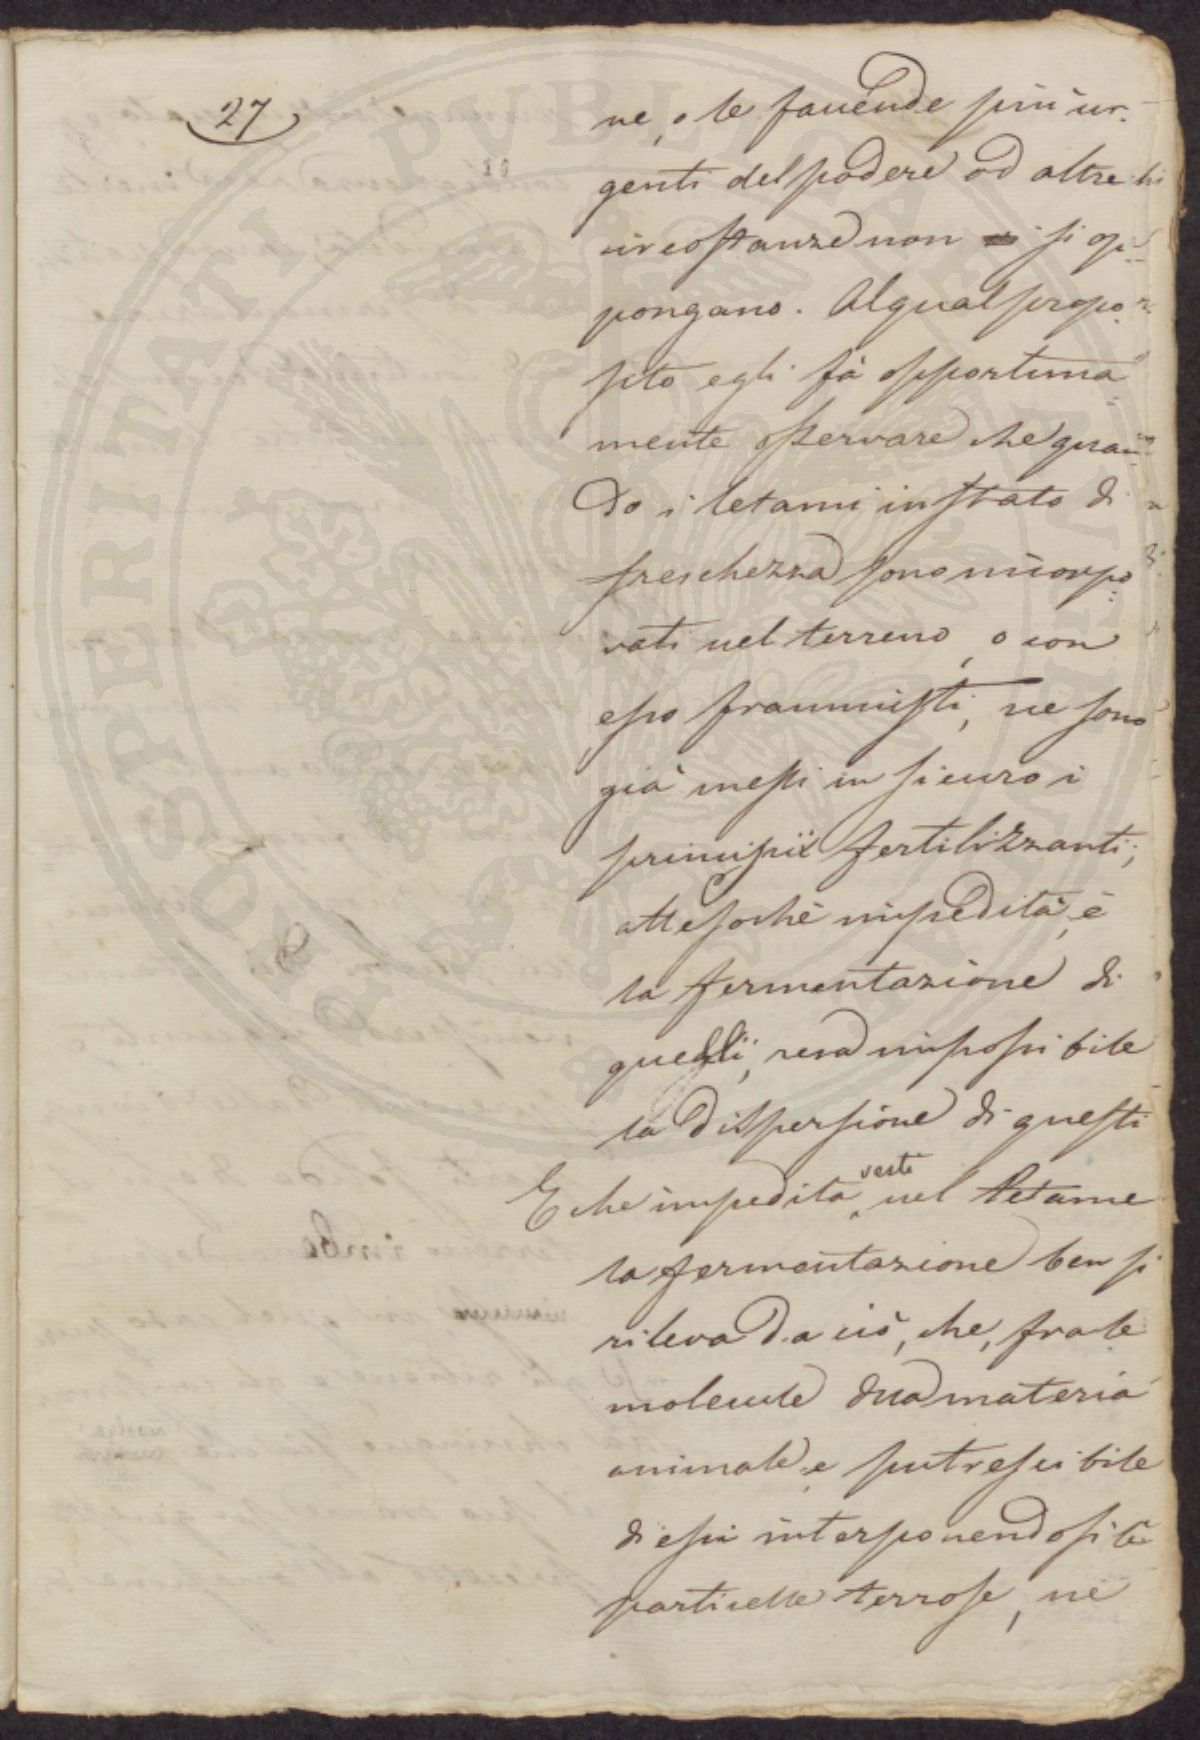 27
ne, o le facende più ur-
genti del podere od altre
circostanze non si op-
pongano. Al qual propo-
sito egli fà opportuna-
mente osservare che quan-
do i letami in stato di
freschezza sono incorpo-
rati nel terreno, o con
esso frammisti, ne sono
già messi in sicuro i
principii fertilizzanti;
attesochè impedita è
la fermentazione di
quelli, resa impossibile
la dispersione di questi
E che impedita resti nel letame
la fermentazione ben si
rileva da ciò, che, fra le
molecule d'una materia
animale e putrescibile
di essi interponendosi le
particelle terrose, ne